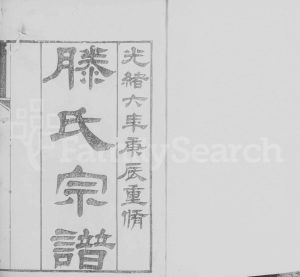 光緒六年庚辰重脩
滕氏宗譜
FamilySearch